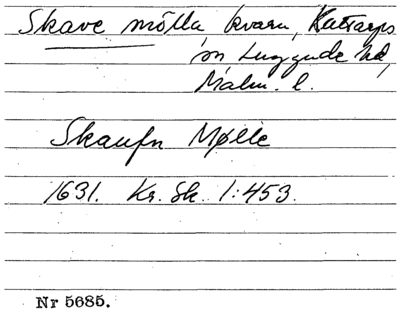 Skave mölla kvarn, Kattarps
sn Luggude hd,
Malm. l.
Skaufn Mølle
1631. Kr. Sk. 1:453.
Nr 5685.